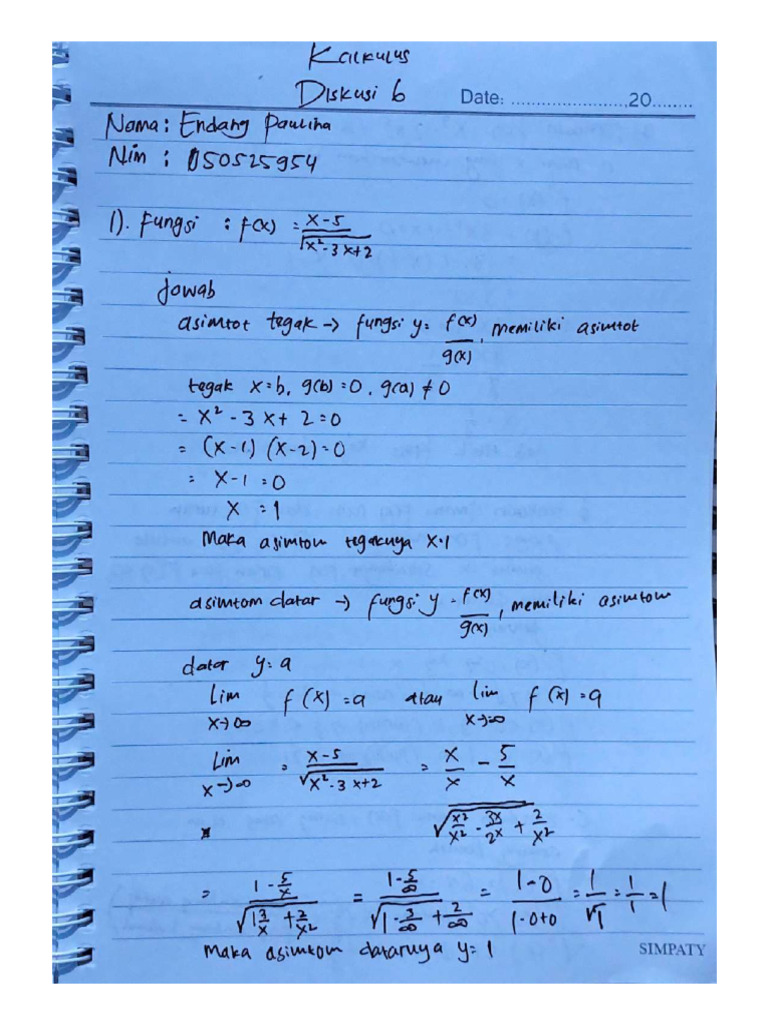 Kalkulus
Diskusi 6 Date: ........................20........
Nama : Endang Paulina
Nim : 050525954
1). Fungsi : f(x) = x-5 / √x²-3x+2
jawab
asimtot tegak → fungsi y = f(x)/g(x), memiliki asimtot
tegak x=b, g(b)=0, g(a) ≠ 0
= x² - 3x + 2 = 0
= (x-1) (x-2) = 0
= x-1 = 0
x = 1
Maka asimtom tegaknya x=1
asimtom datar → fungsi y = f(x)/g(x), memiliki asimtom
datar y = a
lim x→∞ f(x) = a atau lim x→-∞ f(x) = a
lim x→∞ = x-5 / √x²-3x+2 = x/x - 5/x
√x²/x² - 3x/2x + 2/x²
= 1-5/x / √1 3/x + 2/x² = 1-5/∞ / √1-3/∞ + 2/∞ = 1-0 / 1-0+0 = 1/√1 = 1/1 = 1
Maka asimtom datarnya y = 1 SIMPATY